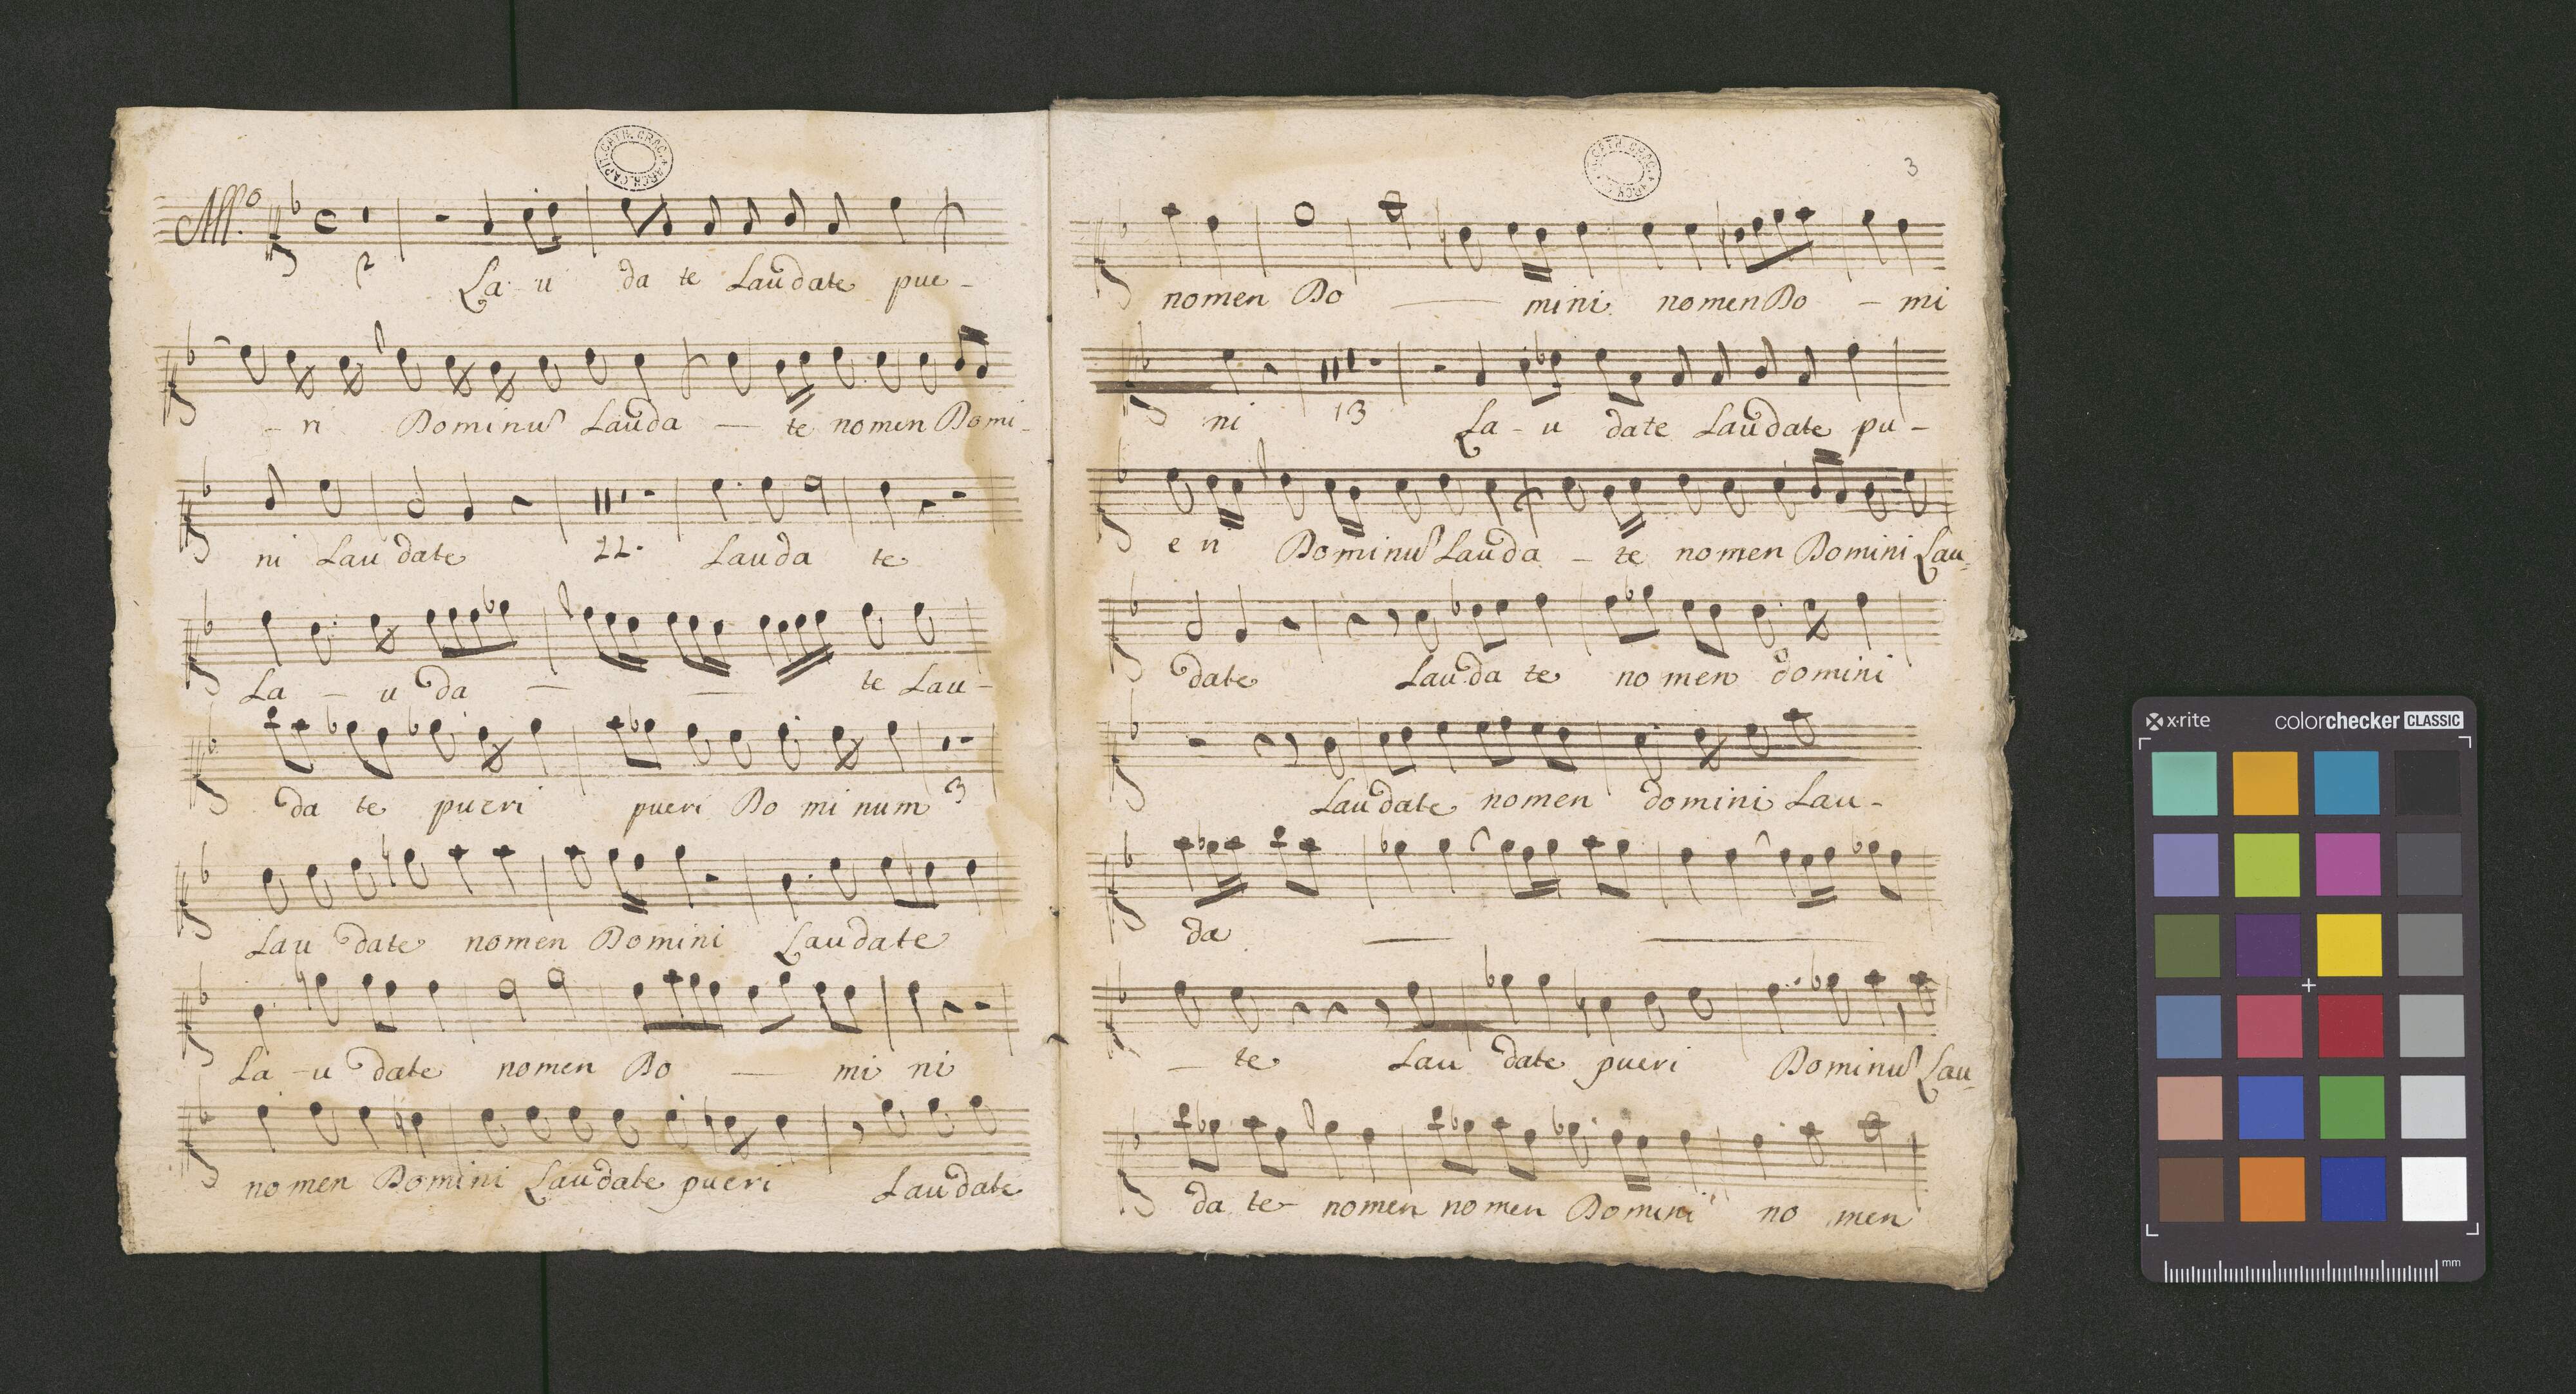 ARCH. CAPIT. CATH. CRAC.
All.o
2
La - u da te Laudate pue -
- ri Dominus Lauda — te nomen Domi -
ni Laudate 11. Lauda te
La - u da — — te Lau -
da te pueri pueri Do mi num 3
Lau date nomen Domini Laudate
La - u date nomen Do — mi ni
nomen Domini Laudate pueri Laudate
3
nomen Do — mini nomen Do - mi
ni 13 La - u date Laudate pu -
e ri Dominus Lauda - te nomen Domini Lau -
date Lauda te no men domini
Laudate nomen domini Lau -
da — —
— te Lau date pueri Dominus Lau -
da te nomen nomen Domini no men
x-rite colorchecker CLASSIC
mm